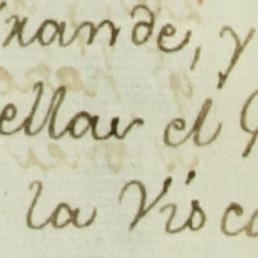 rande, y
ellar el
la Visc